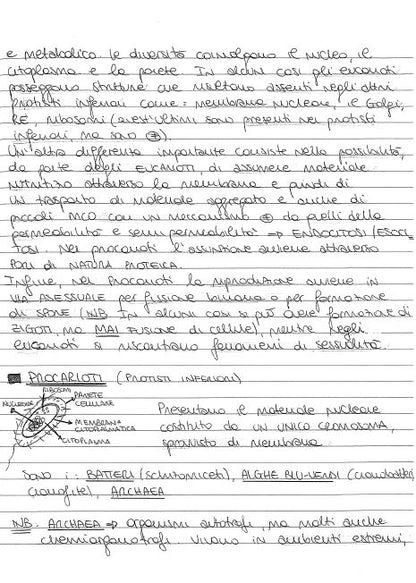 e metabolico. Le diversità coinvolgono il nucleo, il
citoplasma e la parete. In alcuni casi gli eucarioti
posseggono strutture che risultano assenti negli altri
protisti inferiori come: membrana nucleare, il Golgi,
RE, ribosomi (quest'ultimi sono presenti nei protisti
inferiori, ma sono ≠).
Un'altra differenza importante consiste nella possibilità,
da parte degli EUCARIOTI, di assumere materiale
nutritizio attraverso la membrana e quindi di
un trasporto di materiale aggregato e anche di
piccoli MCO con un meccanismo ≠ da quelli della
permeabilità e semipermeabilità → ENDOCITOSI/ESOCI
TOSI. Nei procarioti l'assunzione avviene attraverso
PORI di NATURA PROTEICA.
Infine, nei Procarioti la riproduzione avviene in
VIA ASESSUALE per fissione binaria o per formazione
di SPORE (NB In alcuni casi si può avere formazione di
ZIGOTI, ma MAI FUSIONE di cellule), mentre negli
eucarioti si riscontrano fenomeni di sessualità.
PROCARIOTI (PROTISTI INFERIORI)
RIBOSOMI
NUCLEOIDE
PARETE
CELLULARE
MEMBRANA
CITOPLASMATICA
CITOPLASMA
Presentano il materiale nucleare
costituito da un UNICO CROMOSOMA,
sprovvisto di membrana.
Sono i: BATTERI (schizomiceti), ALGHE BLU-VERDI (cianobatteri,
cianofite), ARCHAEA
NB. ARCHAEA → organismi autotrofi, ma molti anche
chemiorganotrofi. Vivono in ambienti estremi,